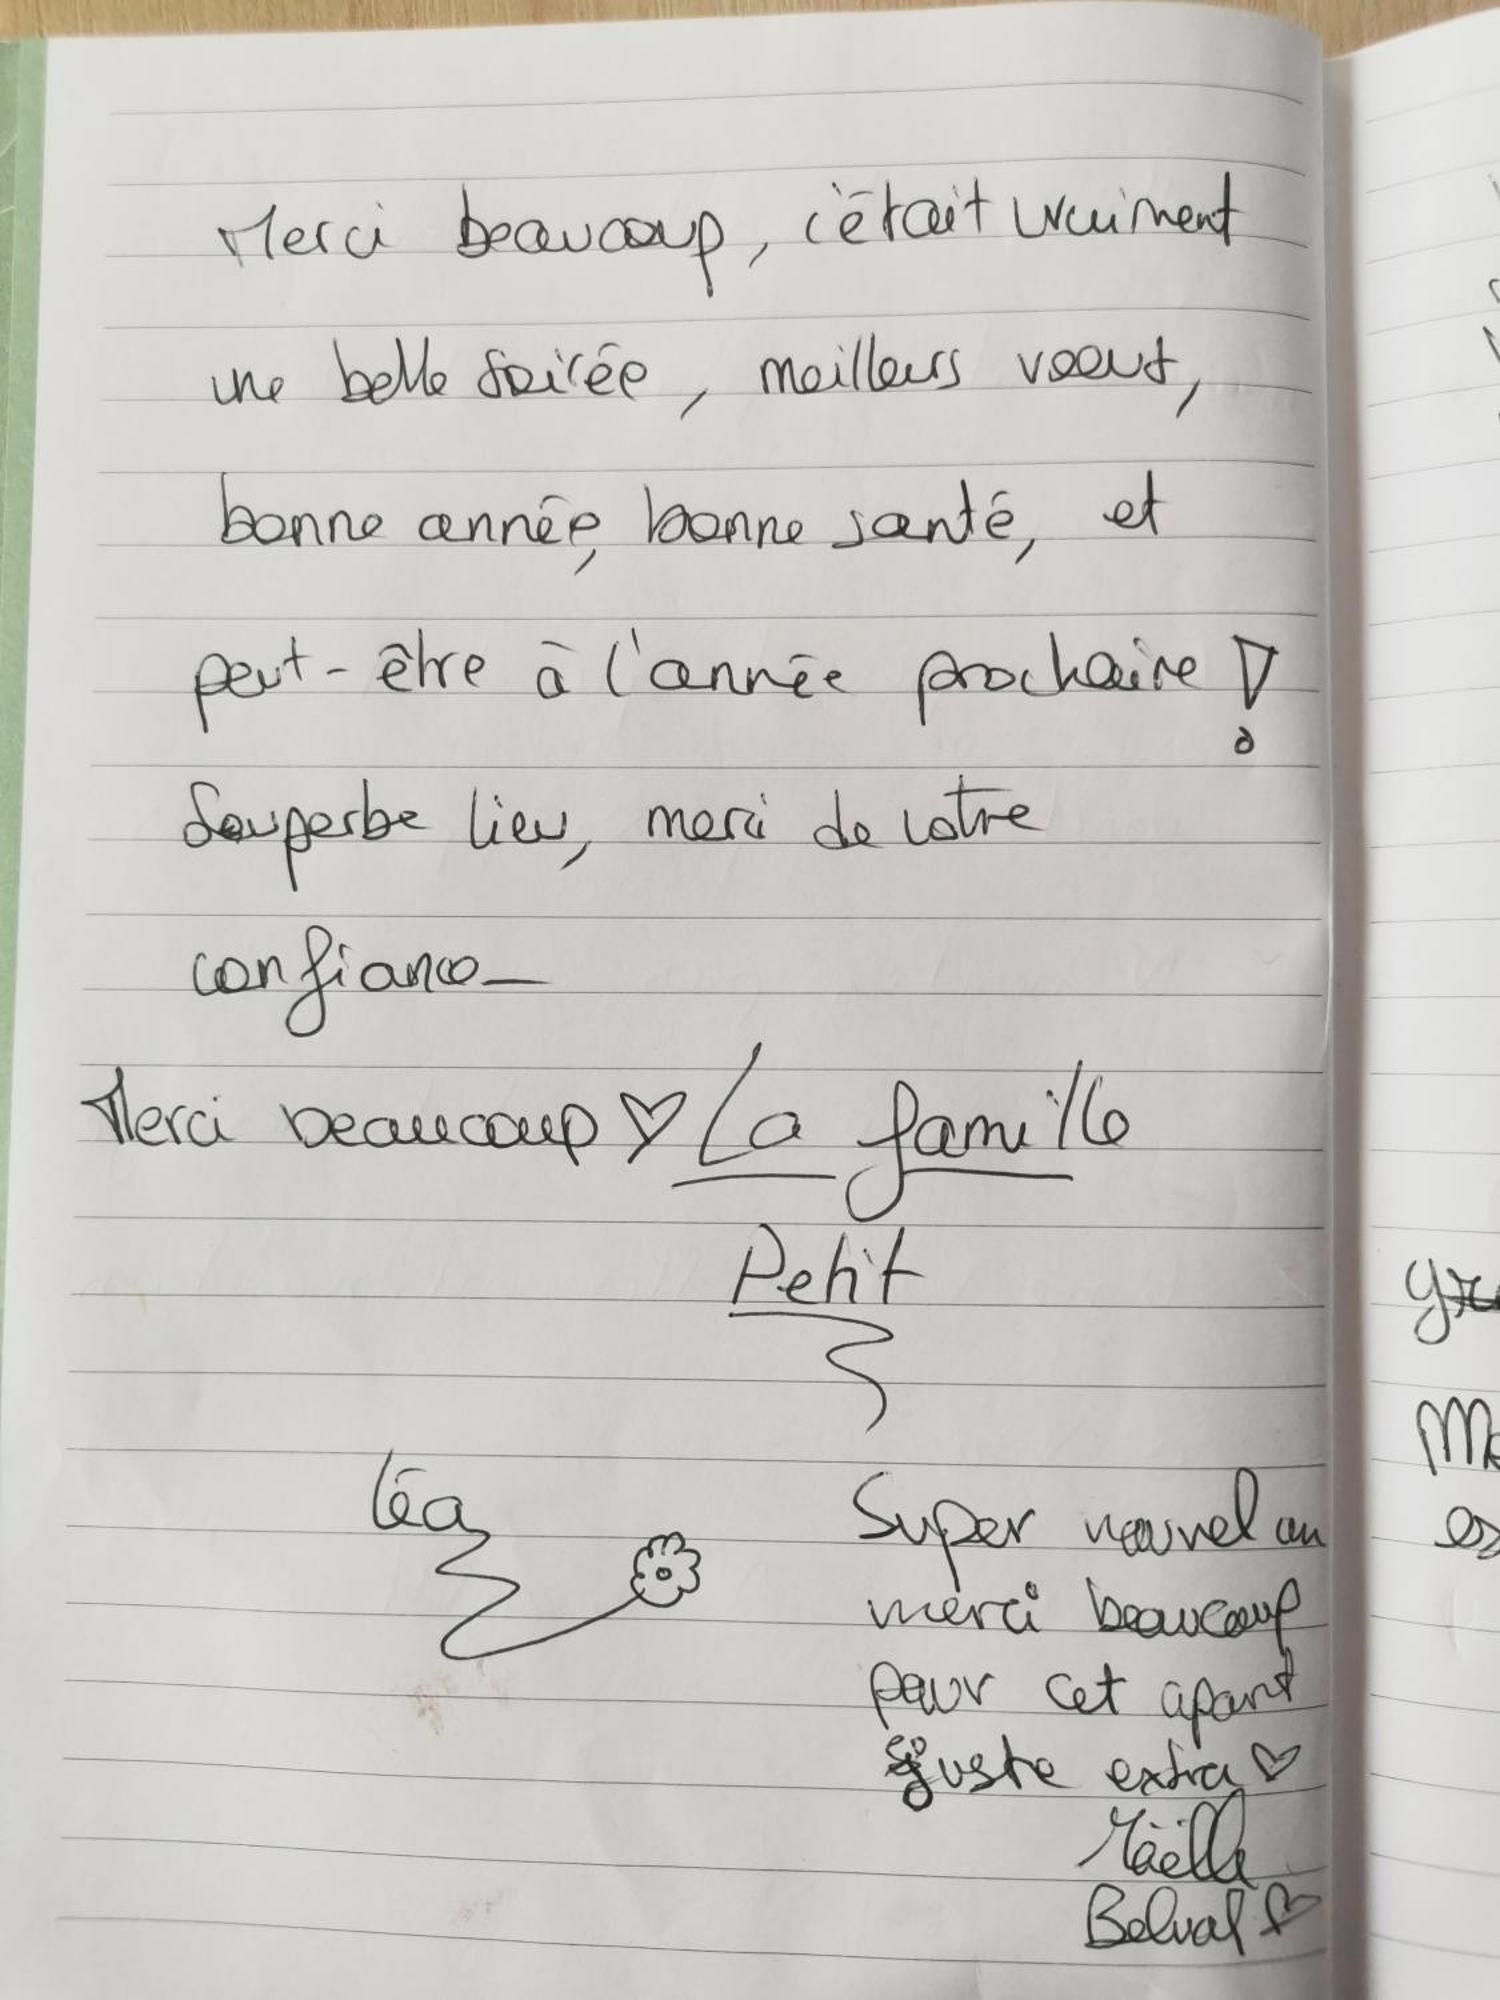 Merci beaucoup, c'était vraiment
une belle soirée, meilleurs voeux,
bonne année, bonne santé, et
peut-être à l'année prochaine !
Souperbe lieu, merci de votre
confiance
Merci beaucoup ♡ La famille
Petit
Léa
Super nouvel an
merci beaucoup
pour cet apart
juste extra ♡
Maëlle
Belval ♡